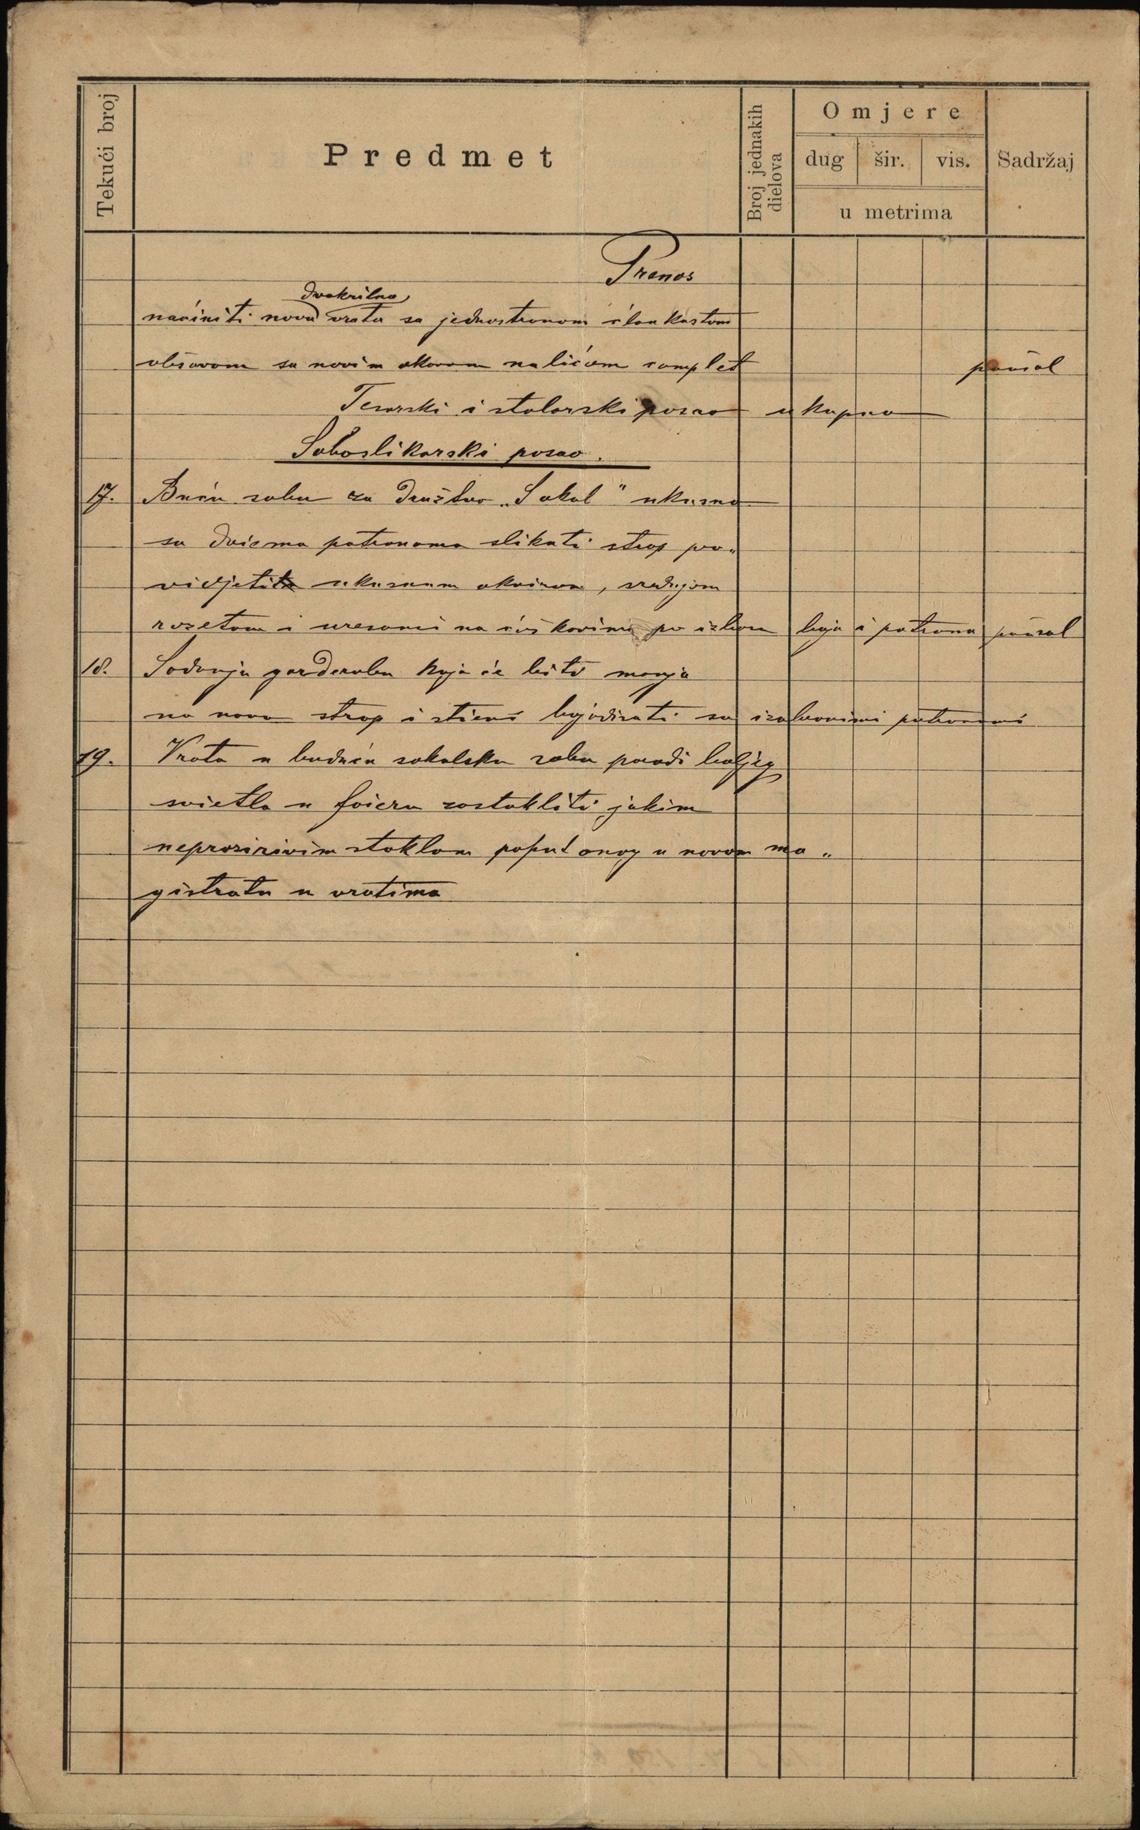 Tekući broj
Predmet
Broj jednakih dielova
Omjere
dug šir. vis.
u metrima
Sadržaj
Prenos
dvokrilna
načiniti nova vrata sa jednostranom
obšavom sa novim okovom naličom complet paušal
Tesarski i stolarski posao ukupno
Soboslikarski posao.
17. Buću sobu za društvo „Sokol" ukusno
sa dviema patronama slikati strop pro„
vidjeti ukusnom okvirom, srednjom
rozetom i uresomi na po izboru boja i patrona paušal
18. Sadanju garderobu koja će biti manja
na novo strop i stieni bojadisati sa izabranimi patronami
19. Vrata u buduću sokolsku sobu poradi boljeg
svietla u foieru zastakliti jakim
neprozirivim staklom poput onog u novom ma„
gistratu u vratima